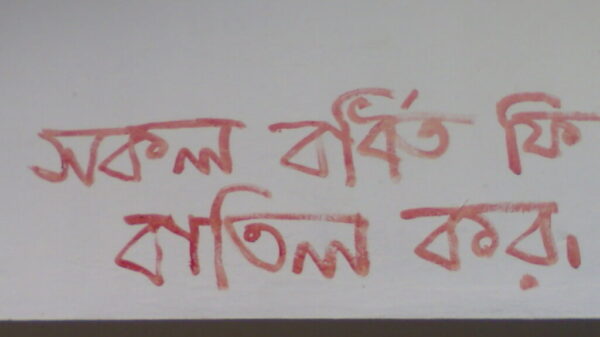 সকল বর্ধিত ফি
বাতিল কর।